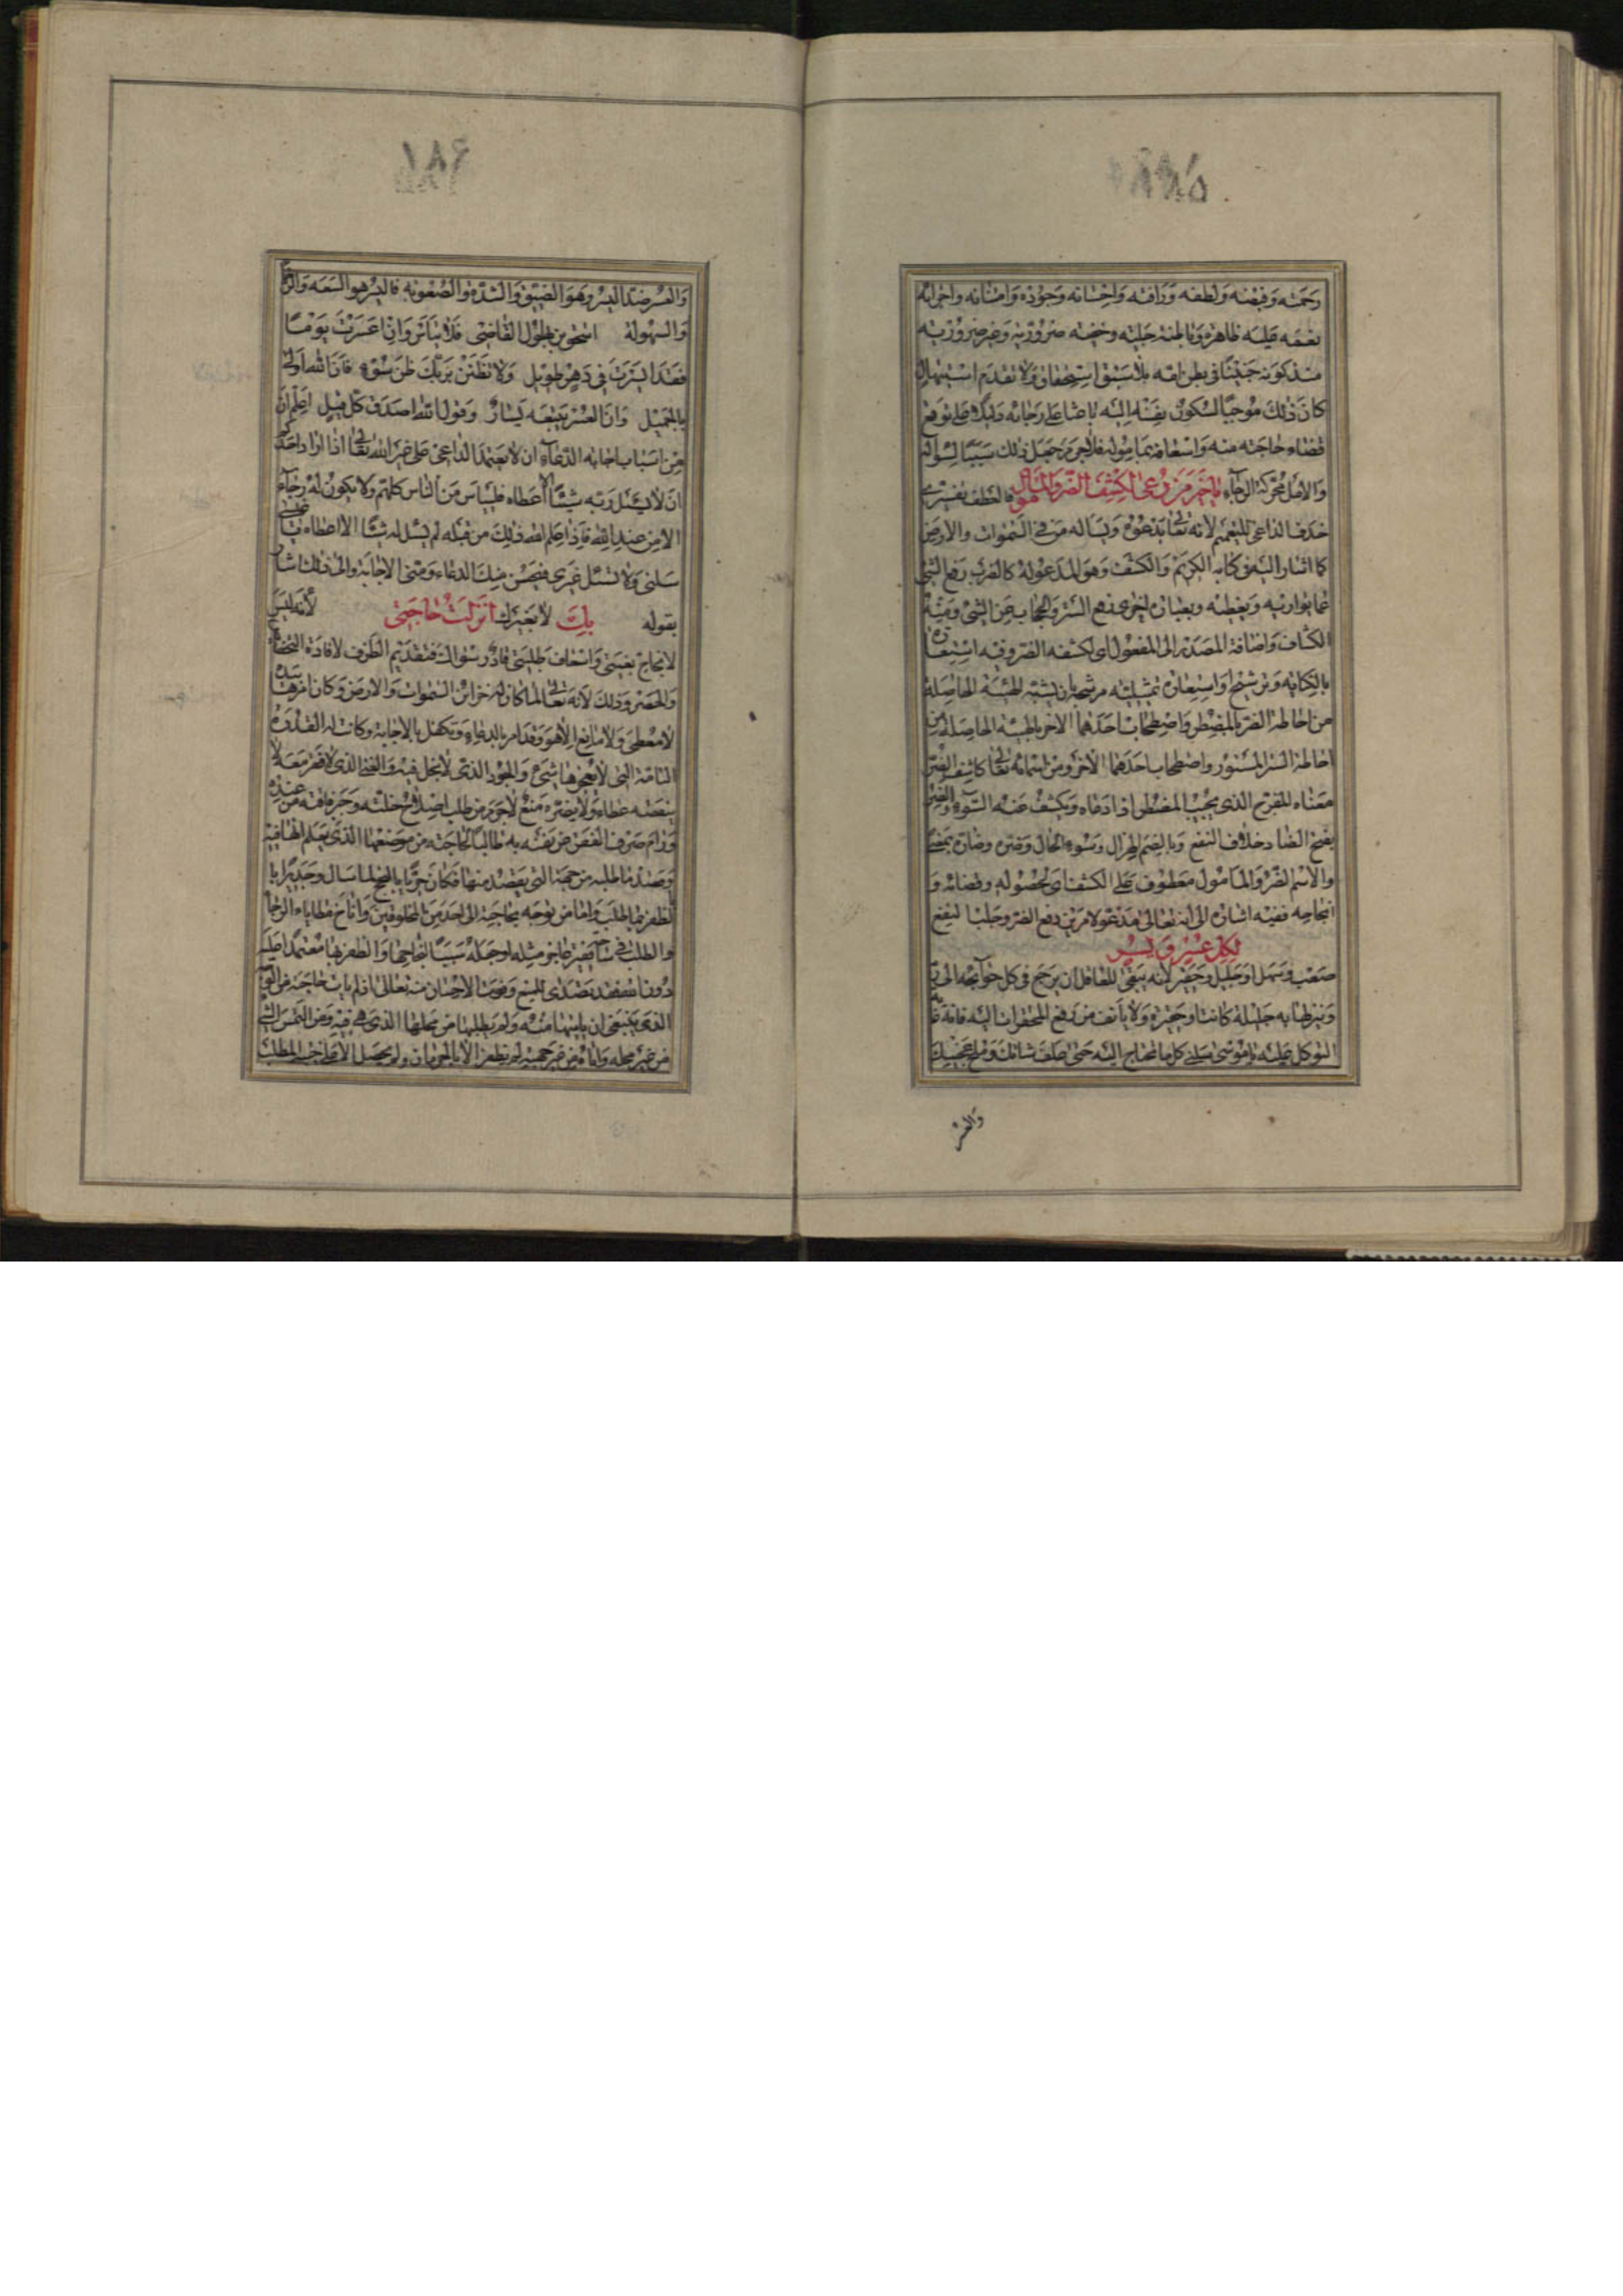 ١٨٥
رحمته وفيضه ولطفه ورافته واحسانه وجوده وامتنانه واجرائه
نعمه عليه ظاهرة وباطنة جلية وخفية ضرورية وغير ضرورية
منذ كونه جنينا فى بطن امه بلا سبق استحقاق ولا تقدم استيهال
كان ذلك موجبا لسكون نفسه اليه باعثا على رجائه دليلا على توقع
قضاء حاجته منه واسعافه بماموله فلا جرم جعل ذلك سببا لسواله
والامل محركة الرجاء يا خير من دعى لكشف الضر والمأمول فالعطف تفسيرى
حذف الداعى للتعميم لانه تعالى يدعوه ويساله من فى السموات والارض
كما اشار اليه فى كتابه الكريم والكشف وهو المدعو له كالضرب رفع الشى
عما يواريه ويغطيه وبعبارة اخرى رفع الستر والحجاب عن الشى ومنه
الكشاف واضافة المصدر الى المفعول اى لكشفه الضر وفيه استعارة
بالكناية وترشيح او استعارة تمثيلية مرشحة بان يشبه الهيئة الحاصلة
من احاطة الضر بالمضطر واصطحاب احدهما الاخر بالهيئة الحاصلة من
احاطة الستر المستور واصطحاب احدهما الاخر ومن اسمائه تعالى كاشف الضر
معناه المفرج الذى يجيب المضطر اذا دعاه ويكشف عنه السوء والضر
بفتح الضاد خلاف النفع وبالضم الهزال وسوء الحال وضره وضاره بمعنى
والاسم الضرر والمامول معطوف على الكشف اى لحصوله وقضائه و
انجاحه ففيه اشارة الى انه تعالى مدعو لامرين دفع الضر وجلب النفع
لكل عسر ويسر
صعب وسهل او جليل وحقير لانه ينبغى للعاقل ان يرجع فى كل حوائجه الى ربه
وينزلها به جليلة كانت او حقيرة ولا يانف من رفع المحقرات اليه فانه
التوكل عليه يا موسى سلنى كل ما تحتاج اليه حتى علف شاتك وملح عجينك
والعسر
١٨۶
والعسر ضد اليسر وهو الضيق والشدة والصعوبة فاليسر هو السعة والرخا
والسهولة
فلا تياس وان اعسرت يوما
فقد ايسرت فى دهر طويل ولا تظنن بربك ظن سوء فان الله اولى
بالجميل وان العسر يتبعه يسار وقول الله اصدق كل قيل اعلم ان
من اسباب اجابة الدعاء ان لا يعتمد الداعى على غير الله تعالى اذا اراد احدكم
ان لا يسئل ربه شيئا الا اعطاه فلييأس من الناس كلهم ولا يكون له رجاء
الا من عند الله فاذا علم الله ذلك من قلبه لم يسئل له شيئا الا اعطاه
سلنى ولا تسئل غيرى فيحسن منك الدعاء ومنى الاجابة والى ذلك اشار
بقوله بك لا بغيرك انزلت حاجتى لانه ليس
لانجاح بغيتى واسعاف طلبتى قادر سواك فتقديم الظرف لافادة التخصيص
والحصر وذلك لانه تعالى لما كان له خزائن السموات والارض وكان امرها بيده
لا معطى ولا مانع الا هو وقد امر بالدعاء وتكفل بالاجابة وكانت له القدرة
التامة التى لا يعجزها شى والجود الذى لا بخل فيه والغنى الذى لا فقر معه لا
ينقصه عطاء ولا يضره منع لا جرم من طلب اصلاح خلته وجبر فاقته من عنده
ورام صرف الفقر عن نفسه به طالبا لحاجته من موضعها الذى يعلم انها فيه
وقصد ما طلبه من جهة التى يقصد منها فكان حريا بالنجح لما سال وجديرا با
لظفر بما طلب واما من توجه بحاجته الى احد من المخلوقين واناخ مطايا الرجاء
والطلب
دونه سبحانه فقد تصدى للمنع وفوت الاحسان منه تعالى اذ لم يات حاجته من الوجه
الذى ينبغى ان ياتيها منه ولم يطلبها من محلها الذى هى فيه ومن التمس الشى
من غير محله واتاه من غير جهته لم يظفر الا بالحرمان ولم يحصل الا على خيبة المطلب